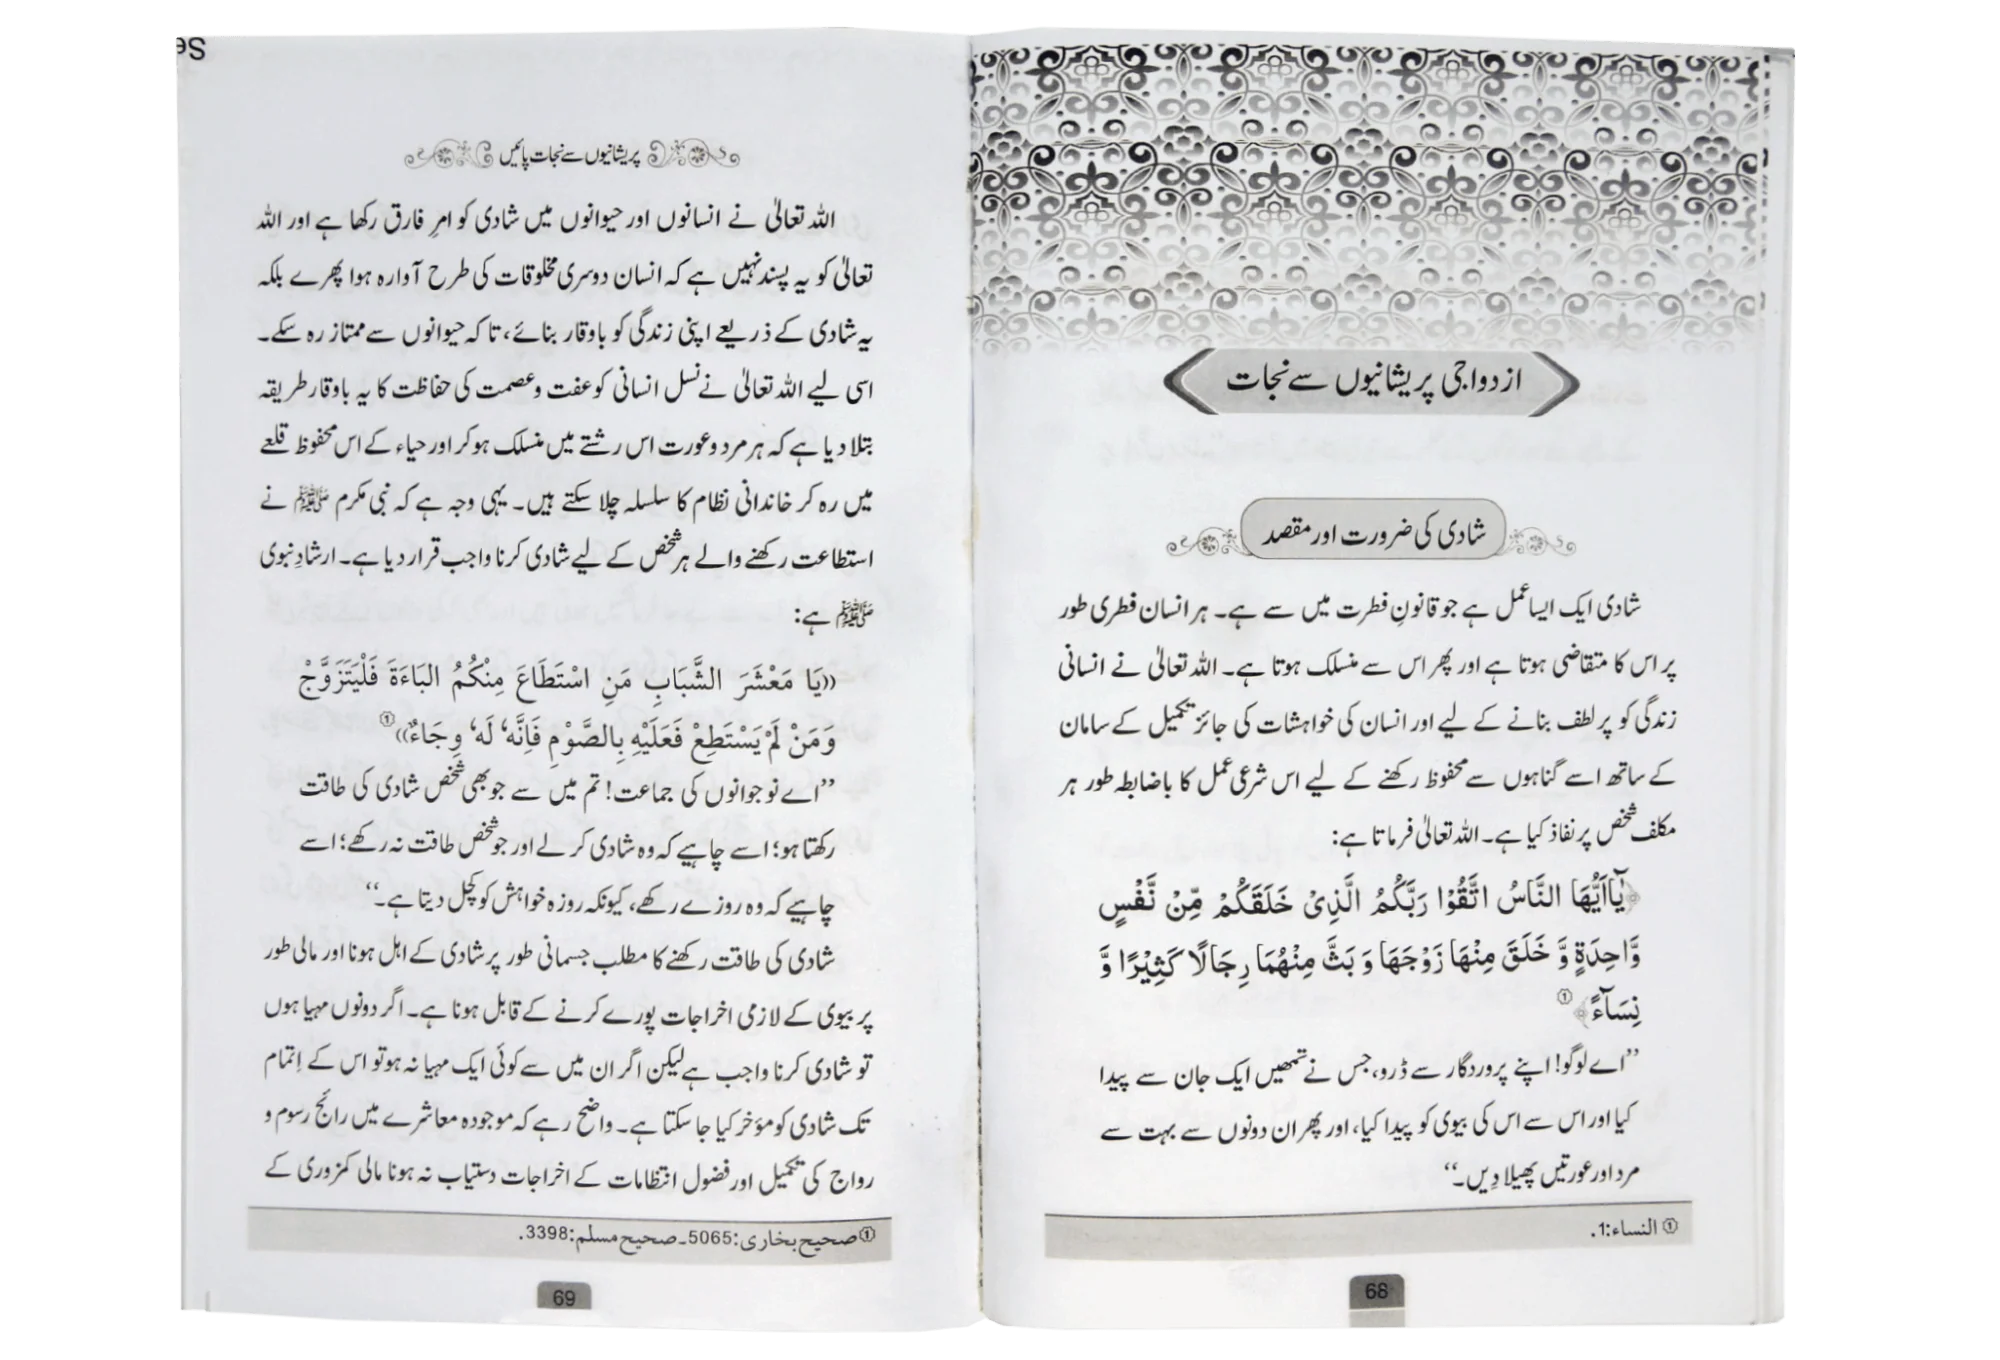 ازدواجی پریشانیوں سے نجات
شادی کی ضرورت اور مقصد
شادی ایک ایسا عمل ہے جو قانونِ فطرت میں سے ہے۔ ہر انسان فطری طور
پر اس کا متقاضی ہوتا ہے اور پھر اس سے منسلک ہوتا ہے۔ اللہ تعالیٰ نے انسانی
زندگی کو پر لطف بنانے کے لیے اور انسان کی خواہشات کی جائز تکمیل کے سامان
کے ساتھ اسے گناہوں سے محفوظ رکھنے کے لیے اس شرعی عمل کا باضابطہ طور ہر
مکلف شخص پر نفاذ کیا ہے۔ اللہ تعالیٰ فرماتا ہے:
﴿يٰٓاَيُّهَا النَّاسُ اتَّقُوْا رَبَّكُمُ الَّذِيْ خَلَقَكُمْ مِّنْ نَّفْسٍ
وَّاحِدَةٍ وَّ خَلَقَ مِنْهَا زَوْجَهَا وَ بَثَّ مِنْهُمَا رِجَالًا كَثِيْرًا وَّ
نِسَآءً﴾ ①
”اے لوگو! اپنے پروردگار سے ڈرو، جس نے تمھیں ایک جان سے پیدا
کیا اور اس سے اس کی بیوی کو پیدا کیا، اور پھر ان دونوں سے بہت سے
مرد اور عورتیں پھیلا دِیں۔“
① النساء:1.
68
Se
پریشانیوں سے نجات پائیں
اللہ تعالیٰ نے انسانوں اور حیوانوں میں شادی کو امرِ فارق رکھا ہے اور اللہ
تعالیٰ کو یہ پسند نہیں ہے کہ انسان دوسری مخلوقات کی طرح آوارہ ہوا پھرے بلکہ
یہ شادی کے ذریعے اپنی زندگی کو باوقار بنائے، تاکہ حیوانوں سے ممتاز رہ سکے۔
اسی لیے اللہ تعالیٰ نے نسل انسانی کو عفت و عصمت کی حفاظت کا یہ باوقار طریقہ
بتلا دیا ہے کہ ہر مرد و عورت اس رشتے میں منسلک ہو کر اور حیاء کے اس محفوظ قلعے
میں رہ کر خاندانی نظام کا سلسلہ چلا سکتے ہیں۔ یہی وجہ ہے کہ نبی مکرم ﷺ نے
استطاعت رکھنے والے ہر شخص کے لیے شادی کرنا واجب قرار دیا ہے۔ ارشادِ نبوی
ﷺ ہے:
((يَا مَعْشَرَ الشَّبَابِ مَنِ اسْتَطَاعَ مِنْكُمُ البَاءَةَ فَلْيَتَزَوَّجْ
وَمَنْ لَمْ يَسْتَطِعْ فَعَلَيْهِ بِالصَّوْمِ فَإِنَّهٗ لَهٗ وِجَاءٌ)) ①
”اے نوجوانوں کی جماعت! تم میں سے جو بھی شخص شادی کی طاقت
رکھتا ہو؛ اسے چاہیے کہ وہ شادی کر لے اور جو شخص طاقت نہ رکھے؛ اسے
چاہیے کہ وہ روزے رکھے، کیونکہ روزہ خواہش کو کچل دیتا ہے۔“
شادی کی طاقت رکھنے کا مطلب جسمانی طور پر شادی کے اہل ہونا اور مالی طور
پر بیوی کے لازمی اخراجات پورے کرنے کے قابل ہونا ہے۔ اگر دونوں مہیا ہوں
تو شادی کرنا واجب ہے لیکن اگر ان میں سے کوئی ایک مہیا نہ ہو تو اس کے اِتمام
تک شادی کو مؤخر کیا جا سکتا ہے۔ واضح رہے کہ موجودہ معاشرے میں رائج رسوم و
رواج کی تکمیل اور فضول انتظامات کے اخراجات دستیاب نہ ہونا مالی کمزوری کے
① صحیح بخاری:5065۔ صحیح مسلم:3398.
69